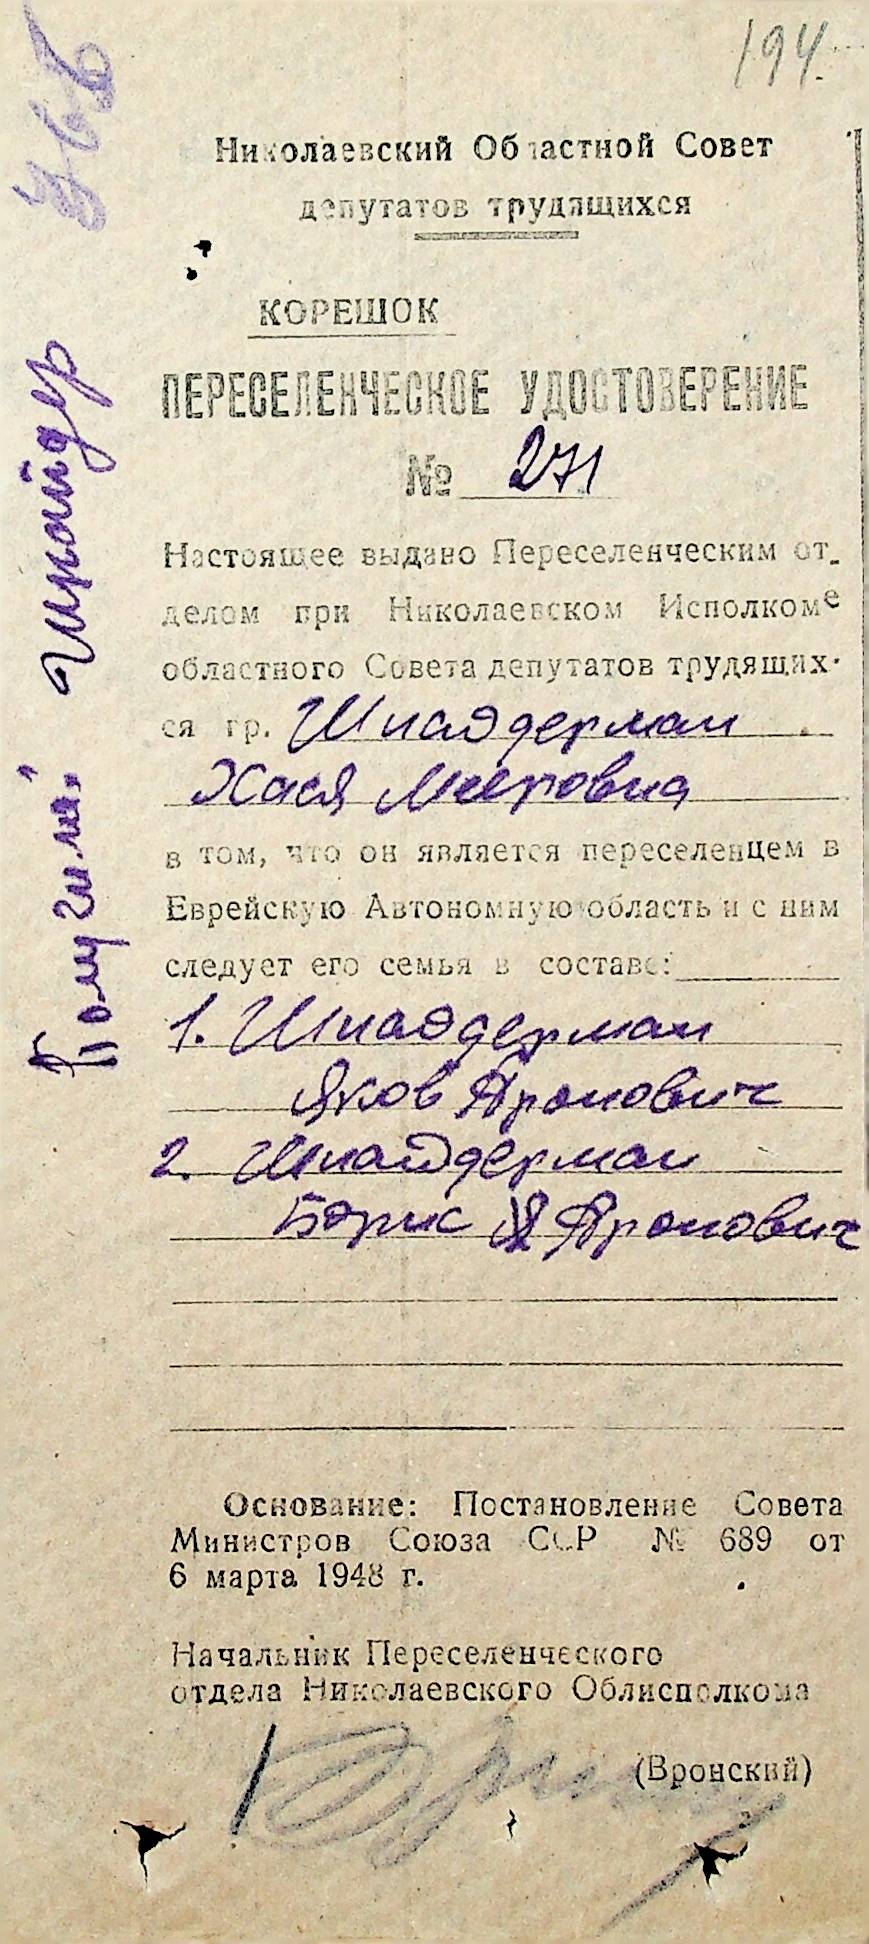 194.
Николаевский Областной Совет
депутатов трудящихся
КОРЕШОК
ПЕРЕСЕЛЕНЧЕСКОЕ УДОСТОВЕРЕНИЕ
№ 271
Настоящее выдано Переселенческим от-
делом при Николаевском Исполкоме
областного Совета депутатов трудящих-
ся гр. Шнайдерман
Хася Мееровна
в том, что он является переселенцем в
Еврейскую Автономную область и с ним
следует его семья в составе:
1. Шнайдерман
Яков Аронович
2. Шнайдерман
Борис Аронович
Основание: Постановление Совета
Министров Союза ССР № 689 от
6 марта 1948 г.
Начальник Переселенческого
отдела Николаевского Облисполкома
(Вронский)
Получила: Шнайдер